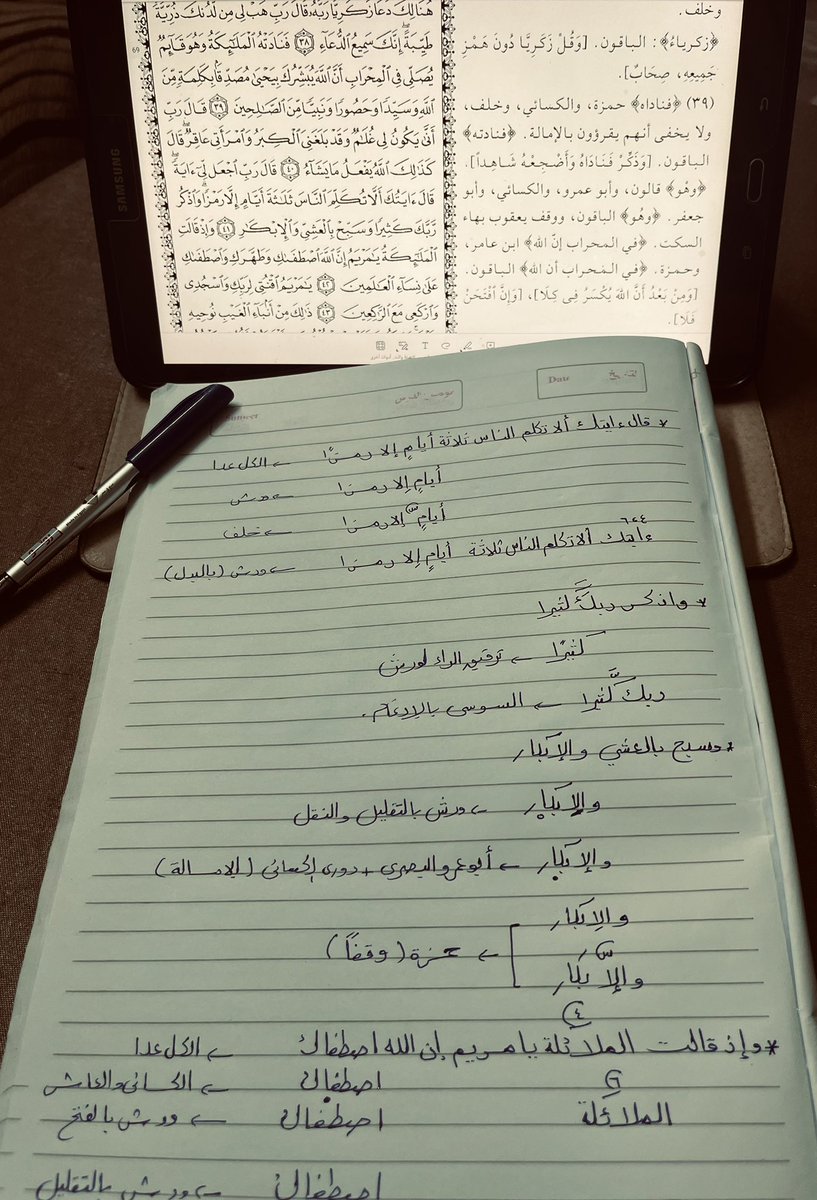 هُنَالِكَ دَعَا زَكَرِيَّا رَبَّهُ قَالَ رَبِّ هَبْ لِي مِن لَّدُنكَ ذُرِّيَّةً
طَيِّبَةً إِنَّكَ سَمِيعُ الدُّعَاءِ ٣٨ فَنَادَتْهُ الْمَلَٰئِكَةُ وَهُوَ قَائِمٌ
يُصَلِّي فِي الْمِحْرَابِ أَنَّ اللَّهَ يُبَشِّرُكَ بِيَحْيَىٰ مُصَدِّقًا بِكَلِمَةٍ مِّنَ
اللَّهِ وَسَيِّدًا وَحَصُورًا وَنَبِيًّا مِّنَ الصَّٰلِحِينَ ٣٩ قَالَ رَبِّ
أَنَّىٰ يَكُونُ لِي غُلَٰمٌ وَقَدْ بَلَغَنِيَ الْكِبَرُ وَامْرَأَتِي عَاقِرٌ قَالَ
كَذَٰلِكَ اللَّهُ يَفْعَلُ مَا يَشَاءُ ٤٠ قَالَ رَبِّ اجْعَل لِّي ءَايَةً
قَالَ ءَايَتُكَ أَلَّا تُكَلِّمَ النَّاسَ ثَلَٰثَةَ أَيَّامٍ إِلَّا رَمْزًا وَاذْكُر
رَّبَّكَ كَثِيرًا وَسَبِّحْ بِالْعَشِيِّ وَالْإِبْكَٰرِ ٤١ وَإِذْ قَالَتِ
الْمَلَٰئِكَةُ يَٰمَرْيَمُ إِنَّ اللَّهَ اصْطَفَىٰكِ وَطَهَّرَكِ وَاصْطَفَىٰكِ
عَلَىٰ نِسَاءِ الْعَٰلَمِينَ ٤٢ يَٰمَرْيَمُ اقْنُتِي لِرَبِّكِ وَاسْجُدِي
وَارْكَعِي مَعَ الرَّٰكِعِينَ ٤٣ ذَٰلِكَ مِنْ أَنبَاءِ الْغَيْبِ نُوحِيهِ
وخلف.
﴿زكرياءُ﴾: الباقون. [وَقُلْ زَكَرِيَّا دُونَ هَمْزِ
جَمِيعِهِ، صِحَابٌ].
(٣٩) ﴿فناداه﴾ حمزة، والكسائي، وخلف،
ولا يخفى أنهم يقرؤون بالإمالة. ﴿فنادته﴾
الباقون. [وَذَكِّرْ فَنَادَاهُ وَأَضْجِعْهُ شَاهِداً].
﴿وهْو﴾ قالون، وأبو عمرو، والكسائي، وأبو
جعفر. ﴿وهُو﴾ الباقون، ووقف يعقوب بهاء
السكت. ﴿في المحراب إنّ الله﴾ ابن عامر،
وحمزة. ﴿في المحراب أن الله﴾ الباقون.
[وَمِنْ بَعْدُ أَنَّ اللهَ يُكْسَرُ فِي كِلَا]، [وَإِنَّ افْتَحَنْ
فَلَا].
SAMSUNG
69
Date
* قال ءايتك ألا تكلم الناس ثلاثة أيامٍ إلا رمزًا ← الكل عدا
أيامٍ اِلا رمزا ← ورش
أيامٍ إلا رمزا ← خلف
ءايتك ألا تكلم الناس ثلاثة أيامٍ اِلا رمزا ← ورش (بالبدل)
* واذكر ربك كثيرا
كثيرًا ← ترقيق الراء لورش
ربك كَّثيرا ← السوسي بالإدغام.
* وسبح بالعشي والإبكار
والابكار ← ورش بالتقليل والنقل
والإبكار ← أبو عمرو البصري + دوري الكسائي (الإمالة)
والابكار
س
والإبكار
← حمزة (وقفاً)
٤
* وإذ قالت الملائكة يا مريم إن الله اصطفاك ← الكل عدا
اصطفاك ← الكسائي والعاشر
٦
الملائكة اصطفاك ← ورش بالفتح
اصطفاك ← ورش بالتقليل